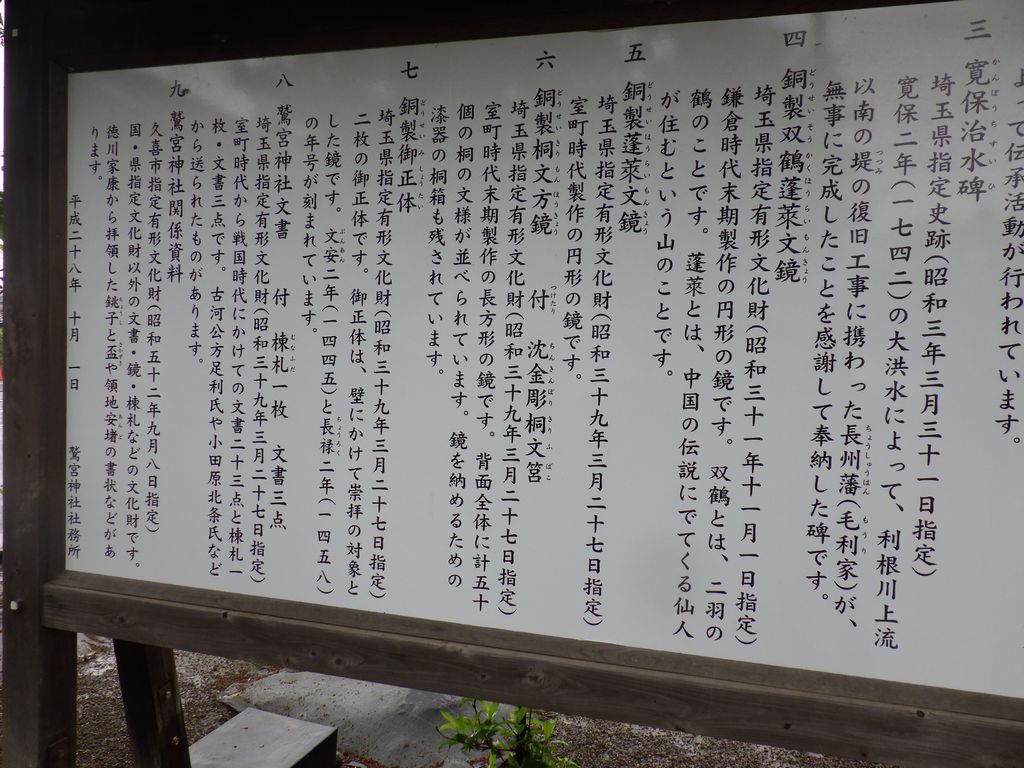 よって伝承活動が行われています。
三 寛保治水碑
埼玉県指定史跡(昭和三年三月三十一日指定)
寛保二年(一七四二)の大洪水によって、利根川上流
以南の堤の復旧工事に携わった長州藩(毛利家)が、
無事に完成したことを感謝して奉納した碑です。
四 銅製双鶴蓬萊文鏡
埼玉県指定有形文化財(昭和三十一年十一月一日指定)
鎌倉時代末期製作の円形の鏡です。双鶴とは、二羽の
鶴のことです。蓬萊とは、中国の伝説にでてくる仙人
が住むという山のことです。
五 銅製蓬萊文鏡
埼玉県指定有形文化財(昭和三十九年三月二十七日指定)
室町時代製作の円形の鏡です。
六 銅製桐文方鏡 付 沈金彫桐文筥
埼玉県指定有形文化財(昭和三十九年三月二十七日指定)
室町時代末期製作の長方形の鏡です。背面全体に計五十
個の桐の文様が並べられています。鏡を納めるための
漆器の桐箱も残されています。
七 銅製御正体
埼玉県指定有形文化財(昭和三十九年三月二十七日指定)
二枚の御正体です。御正体は、壁にかけて崇拝の対象と
した鏡です。文安二年(一四四五)と長禄二年(一四五八)
の年号が刻まれています。
八 鷲宮神社文書 付 棟札一枚 文書三点
埼玉県指定有形文化財(昭和三十九年三月二十七日指定)
室町時代から戦国時代にかけての文書二十三点と棟札一
枚・文書三点です。古河公方足利氏や小田原北条氏など
から送られたものがあります。
九 鷲宮神社関係資料
久喜市指定有形文化財(昭和五十二年九月八日指定)
国・県指定文化財以外の文書・鏡・棟札などの文化財です。
徳川家康から拝領した銚子と盃や領地安堵の書状などがあ
ります。
平成二十八年 十月 一日 鷲宮神社社務所